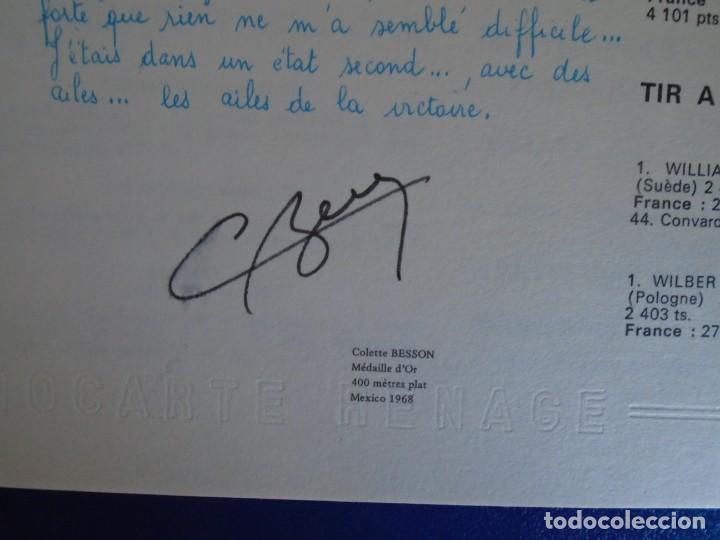 forte que rien ne m'a semblé difficile...
J'étais dans un état second..., avec des
ailes... les ailes de la victoire.
C Bess
Colette BESSON
Médaille d'Or
400 mètres plat
Mexico 1968
OCARTE RENAGE
France
4 101 pts
TIR A
1. WILLIA
(Suède) 2
France : 2
44. Convard
1. WILBER
(Pologne)
2 403 ts.
France : 27
todocoleccion